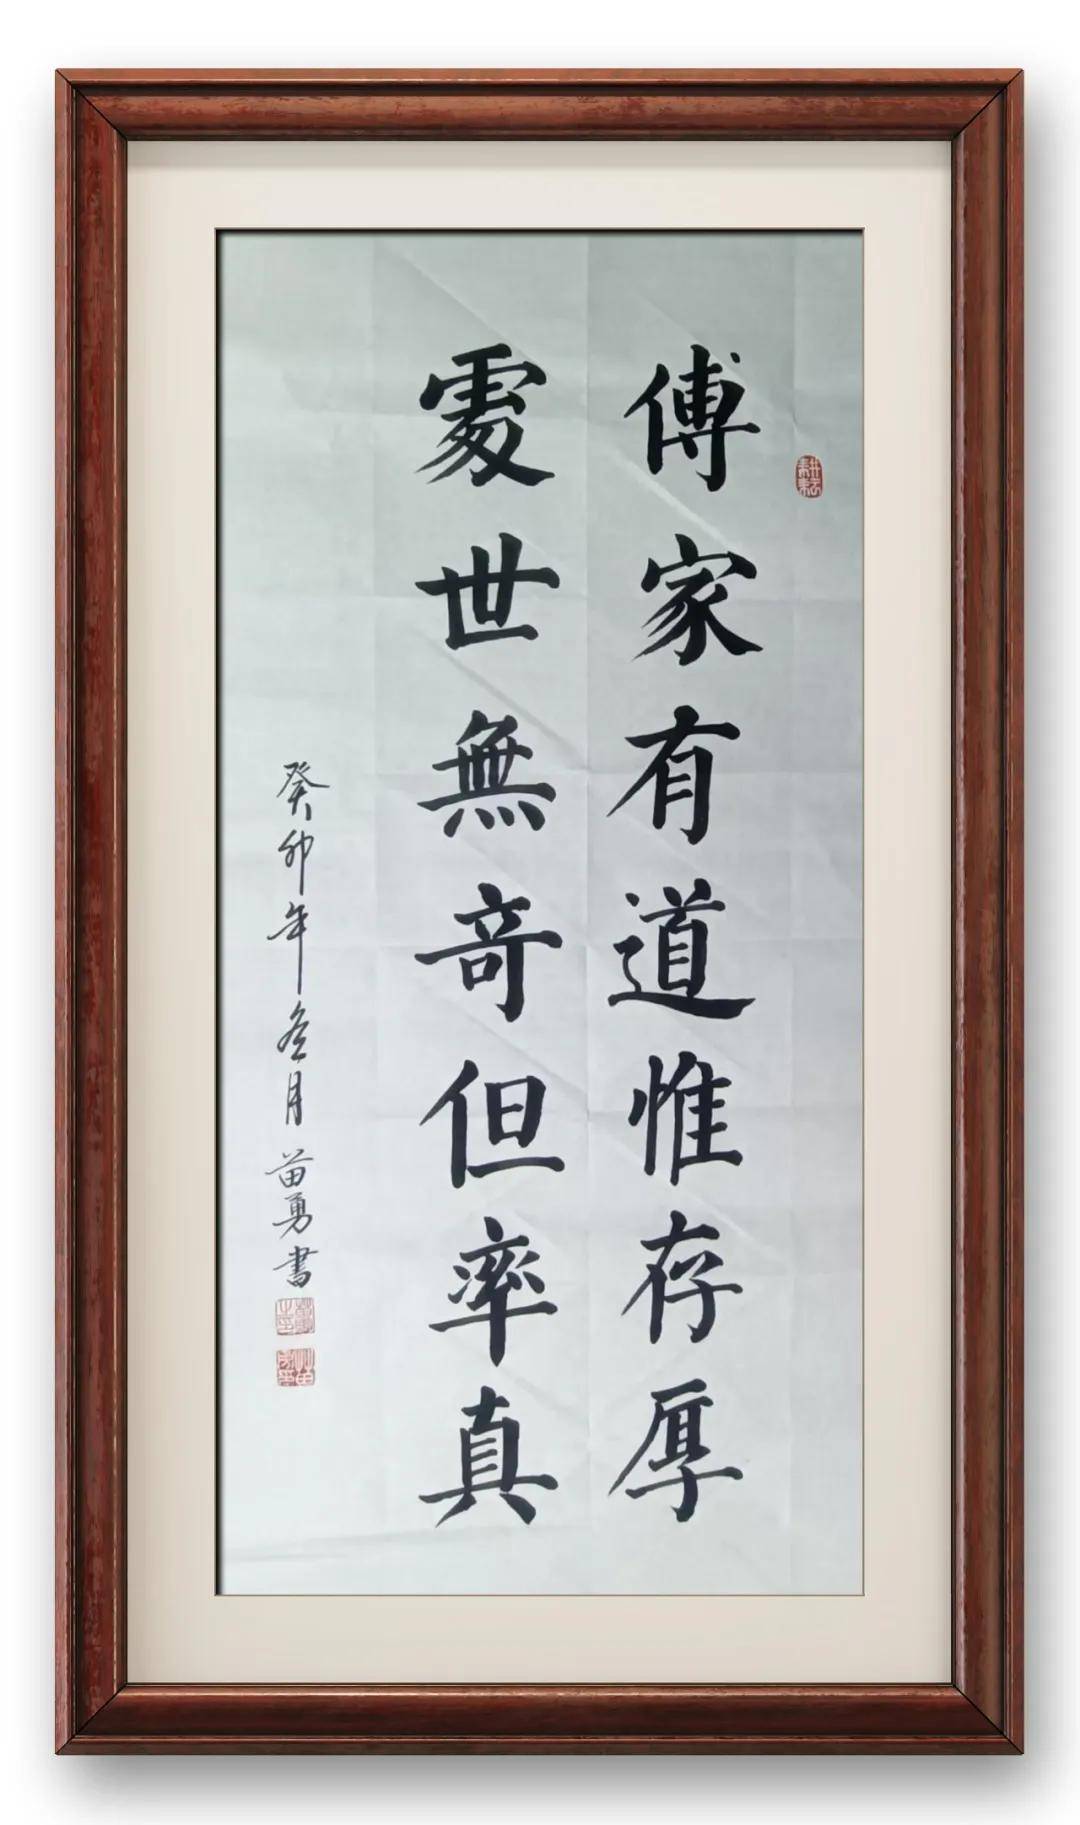 傳家有道惟存厚
處世無奇但率真
癸卯年冬月苗勇書
耕耘